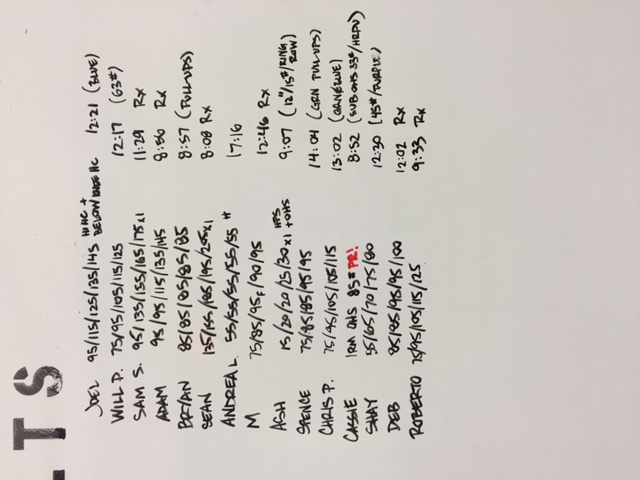 LTS
JOEL 95/115/125/135/145 HI HC + BELOW KNEE HC 12:21 (BLUE)
WILL P. 75/95/105/115/125 12:17 (63#)
SAM S. 95/135/155/165/175x1 11:29 Rx
ADAM 95/95/115/135/145 8:56 Rx
BRYAN 85/85/85/85/85 8:57 (PULLUPS)
SEAN 135/155/185/195/205x1 8:08 Rx
ANDREA L. 55/55/55/55/55 # 17:16
M 75/85/95F/90/95 12:46 Rx
ASH 15/20/20/25/30x1 HPS +OHS 9:07 (12"/15#/RING ROW)
SPENCE 75/85/85/95/95 14:04 (GRN PULLUPS)
CHRIS P. 75/95/105/105/115 13:02 (GRN/BLUE)
CASSIE 1RM OHS 85# PR! 8:52 (SUB OHS 33#/HRPU)
SHAY 55/65/70/75/80 12:30 (45#/PURPLE)
DEB 85/85/95/95/100 12:02 Rx
ROBERTO 75/95/105/115/125 9:33 Rx